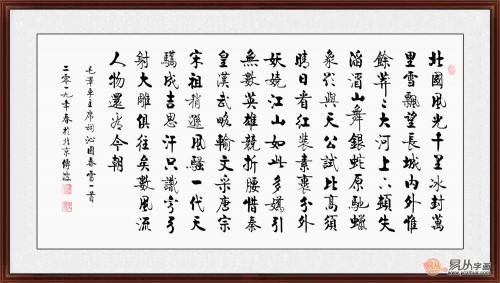 北國風光千里冰封萬
里雪飄望長城內外惟
餘莽〻大河上下頓失
滔滔山舞銀蛇原馳蠟
象欲與天公試比高須
晴日看紅裝素裹分外
妖嬈江山如此多嬌引
無數英雄競折腰惜秦
皇漢武略輸文采唐宗
宋祖稍遜風騷一代天
驕成吉思汗只識彎弓
射大雕俱往矣數風流
人物還看今朝
毛澤東主席詞沁園春雪一首
二零一九年春於北京
易从字画